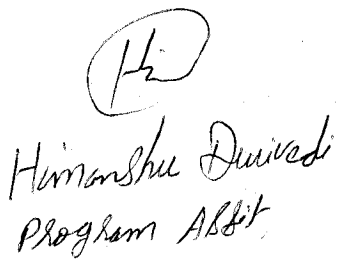 Hi
Himanshu Dwivedi
Program Assit